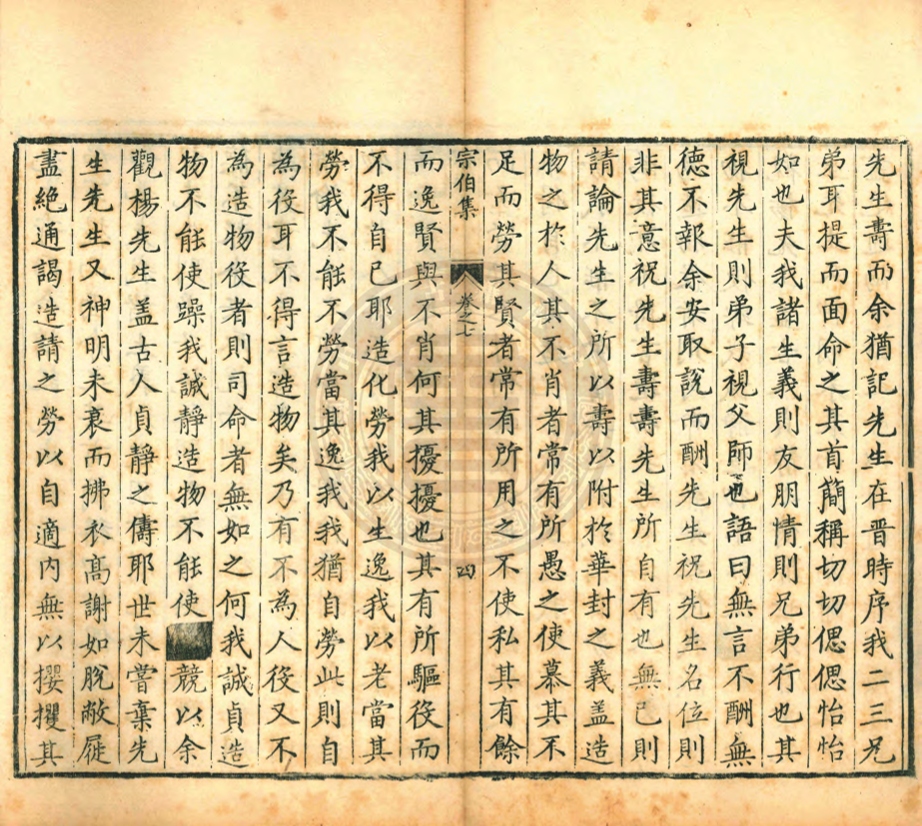 先生壽而余猶記先生在晉時序我二三兄
弟耳提而面命之其首簡稱切切偲偲怡怡
如也夫我諸生義則友朋情則兄弟行也其
視先生則弟子視父師也語曰無言不酬無
德不報余安取說而酬先生祝先生名位則
非其意祝先生壽壽先生所自有也無已則
請論先生之所以壽以附於華封之義盖造
物之於人其不肖者常有所愚之使慕其不
足而勞其賢者常有所用之不使私其有餘
宗伯集 卷之七 四
而逸賢與不肖何其擾擾也其有所驅役而
不得自已耶造化勞我以生逸我以老當其
勞我不能不勞當其逸我我猶自勞此則自
為役耳不得言造物矣乃有不為人役又不
為造物役者則司命者無如之何我誠貞造
物不能使躁我誠靜造物不能使競以余
觀楊先生盖古人貞靜之儔耶世未嘗棄先
生先生又神明未衰而拂衣高謝如脫敝屣
盡絕通謁造請之勞以自適內無以攖攫其